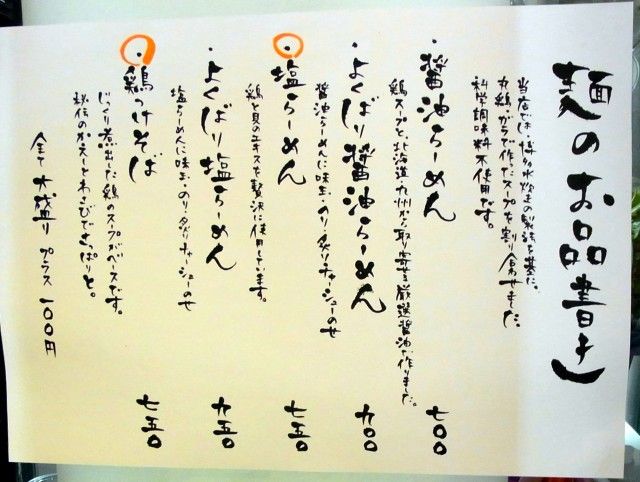 麺のお品書き
当店では、博多水炊きの製法を基に、
丸鶏、ガラで作ったスープを割り合せました。
科学調味料不使用です。
・醤油らーめん 七〇〇
鶏スープと、北海道・九州から取り寄せ厳選醤油で作りました。
・よくばり醤油らーめん 九〇〇
醤油らーめんに味玉・のり・炙りチャーシューのせ
・塩らーめん 七五〇
鶏と貝のエキスを贅沢に使用しています。
・よくばり塩らーめん 九五〇
塩らーめんに味玉・のり・炙りチャーシューのせ
・鶏つけそば 七五〇
じっくり煮出した鶏のスープがベースです。
秘伝のかえしとわさびでさっぱりと。
全て大盛り プラス 一〇〇円